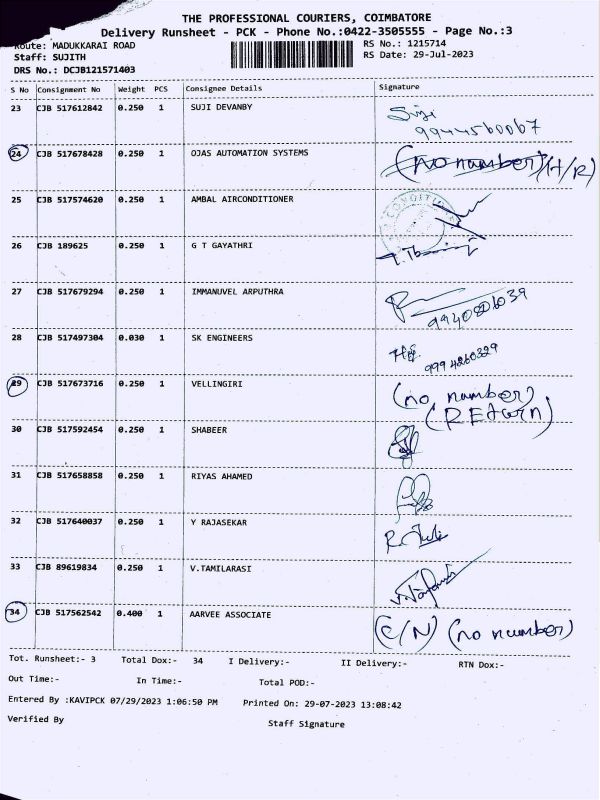 THE PROFESSIONAL COURIERS, COIMBATORE
Delivery Runsheet - PCK - Phone No.:0422-3505555 - Page No.:3
Route: MADUKKARAI ROAD RS No.: 1215714
Staff: SUJITH RS Date: 29-Jul-2023
DRS No.: DCJB121571403
S No Consignment No Weight PCS Consignee Details Signature
23 CJB 517612842 0.250 1 SUJI DEVANBY Suji
24 CJB 517678428 0.250 1 OJAS AUTOMATION SYSTEMS (no number) (H/R)
25 CJB 517574620 0.250 1 AMBAL AIRCONDITIONER
26 CJB 189625 0.250 1 G T GAYATHRI
27 CJB 517679294 0.250 1 IMMANUVEL ARPUTHRA
28 CJB 517497304 0.030 1 SK ENGINEERS
9994260329
29 CJB 517673716 0.250 1 VELLINGIRI (no number)
(REturn)
30 CJB 517592454 0.250 1 SHABEER
31 CJB 517658858 0.250 1 RIYAS AHAMED
32 CJB 517640037 0.250 1 Y RAJASEKAR
33 CJB 89619834 0.250 1 V.TAMILARASI
34 CJB 517562542 0.400 1 AARVEE ASSOCIATE (C/N) (no number)
Tot. Runsheet:- 3 Total Dox:- 34 I Delivery:- II Delivery:- RTN Dox:-
Out Time:- In Time:- Total POD:-
Entered By :KAVIPCK 07/29/2023 1:06:50 PM Printed On: 29-07-2023 13:08:42
Verified By Staff Signature